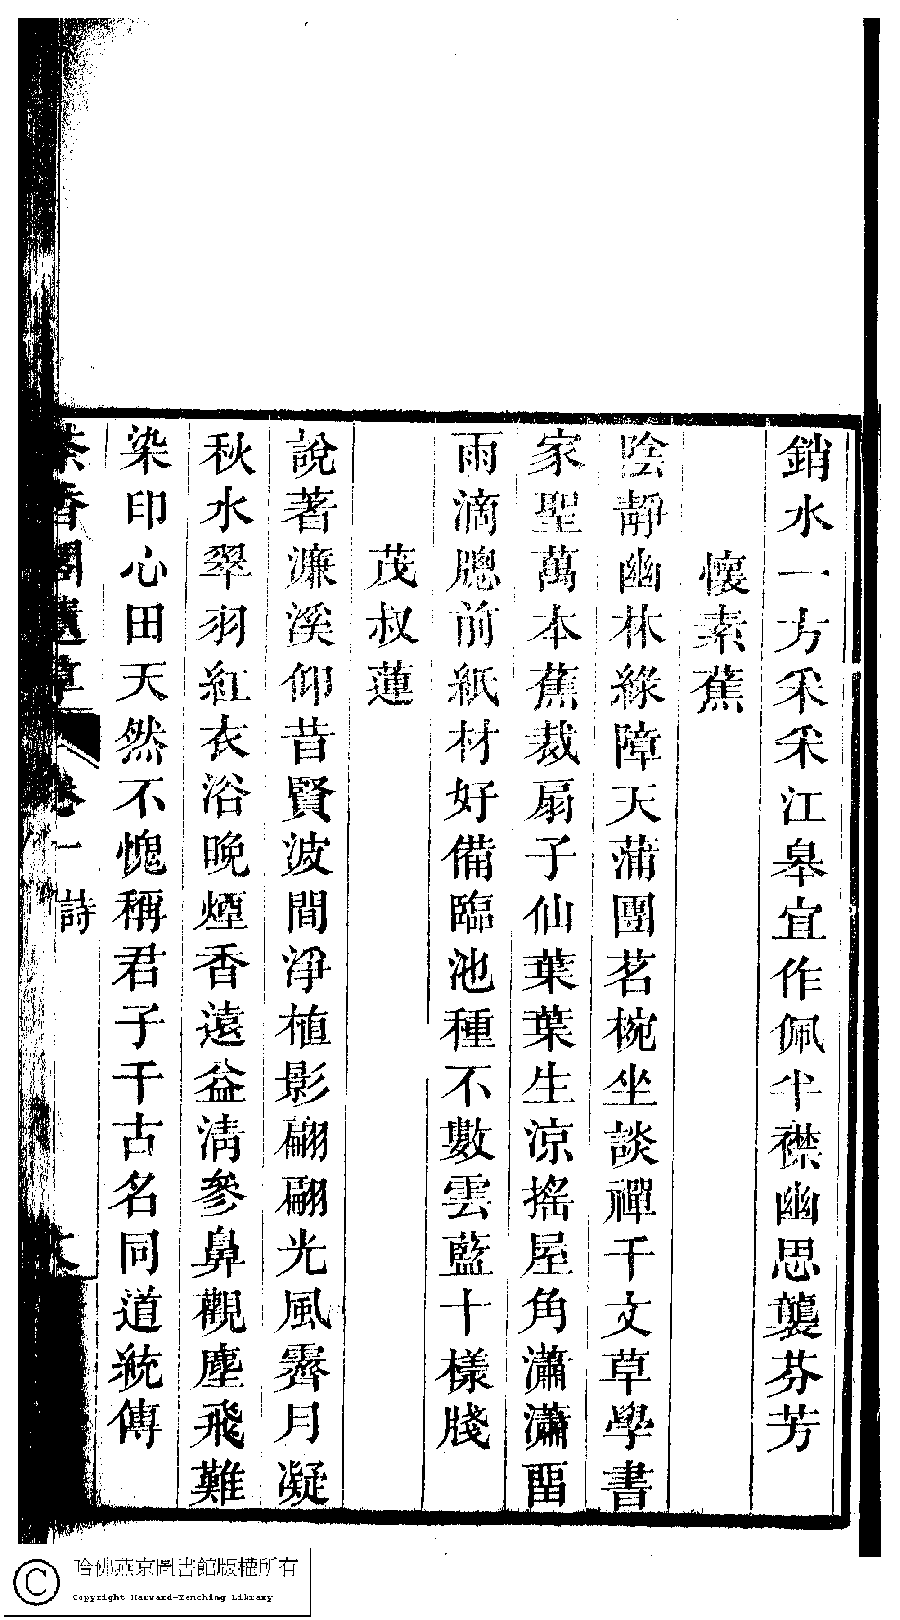 銷水一方采采江皋宜作佩半襟幽思襲芬芳
懷素蕉
陰靜幽林綠障天蒲團茗椀坐談禪千文草學書
家聖萬本蕉裁扇子仙葉葉生涼搖屋角瀟瀟畱
雨滴牎前紙材好備臨池種不數雲藍十樣牋
茂叔蓮
說著濂溪仰昔賢波間淨植影翩翩光風霽月凝
秋水翠羽紅衣浴晚煙香遠益清參鼻觀塵飛難
染印心田天然不愧稱君子千古名同道統傳
茶香閣遺草
卷一
詩
哈佛燕京圖書館版權所有
Copyright Harvard-Yenching Library